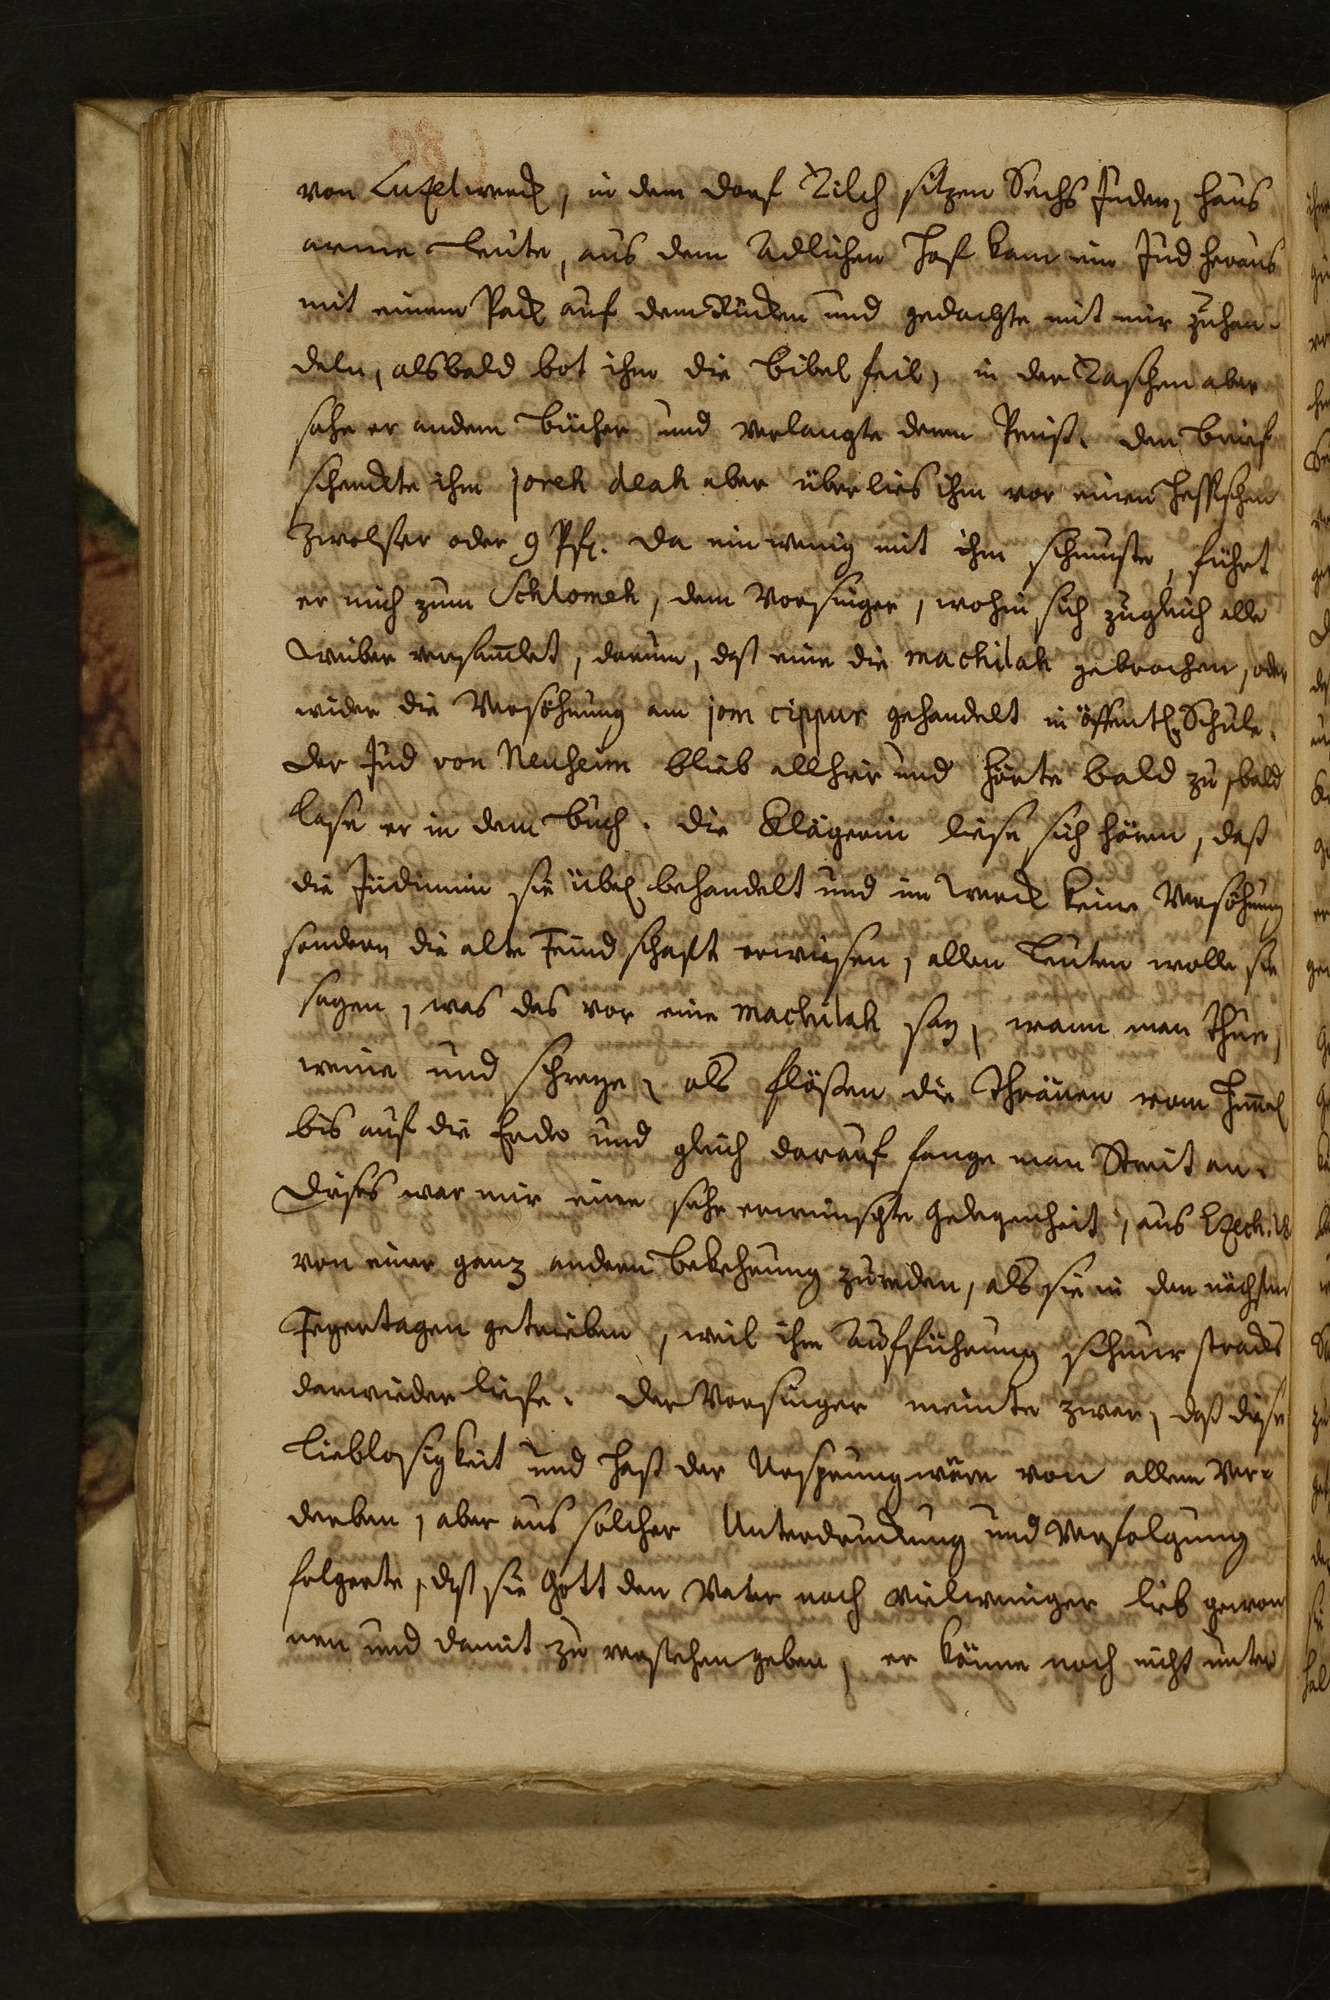 von Lutzelwerck, in dem dorf Zilch sitzen Sechs Juden, haus
arme Leute, aus dem Adlichen Hof kam ein Jud heraus
mit einem Pack auf dem Rücken und gedachte mit mir zuhan-
deln, alsbald bot ihm die Bibel feil, in der Taschen aber
sahe er andere Bücher und verlangte deren Preiß. den brief
schenckte ihm joreh deah aber überlies ihm vor einen Hessischen
zwolfer oder 9 Pf. Da ein wenig mit ihm schmuste, führt
er mich zum Schlomeh, dem Vorsinger, wohin sich zugleich alle
Weiber versamlet, darum, daß eine die machilah gebrochen, oder
wider die Versöhnung am jom cippur gehandelt in öffentl. Schule.
Der Jud von Neuheim blieb allhier und hörte bald zu, bald
lase er in dem Buch. die Klägerin liese sich hören, daß
die Jüdinnin sie übel behandelt und im werck keine Versöhnung
sondern die alte Feindschaft erwiesen, allen Leuten wolle sie
sagen, was das vor eine machilah sey, wann man thue,
weine und schreye, als flößen die Thränen vom Himel
bis auf die Erde und gleich darauf fange man Streit an.
Dieses war mir eine sehr erwünschte Gelegenheit, aus Ezech. 18
von einer ganz andern Bekehrung zureden, als sie in den nächsten
Feyertagen getrieben, weil ihre Aufführung schnur stracks
darwieder liefe. Der Vorsinger meinte zwar, daß diese
Lieblosigkeit und Haß der Ursprung wäre von allem Ver-
derben, aber aus solcher Unterdruckung und Verfolgung
folgerte, daß sie Gott den Vater noch vielweniger lieb gewon
nen und damit zu verstehen geben, er könne noch nicht unter